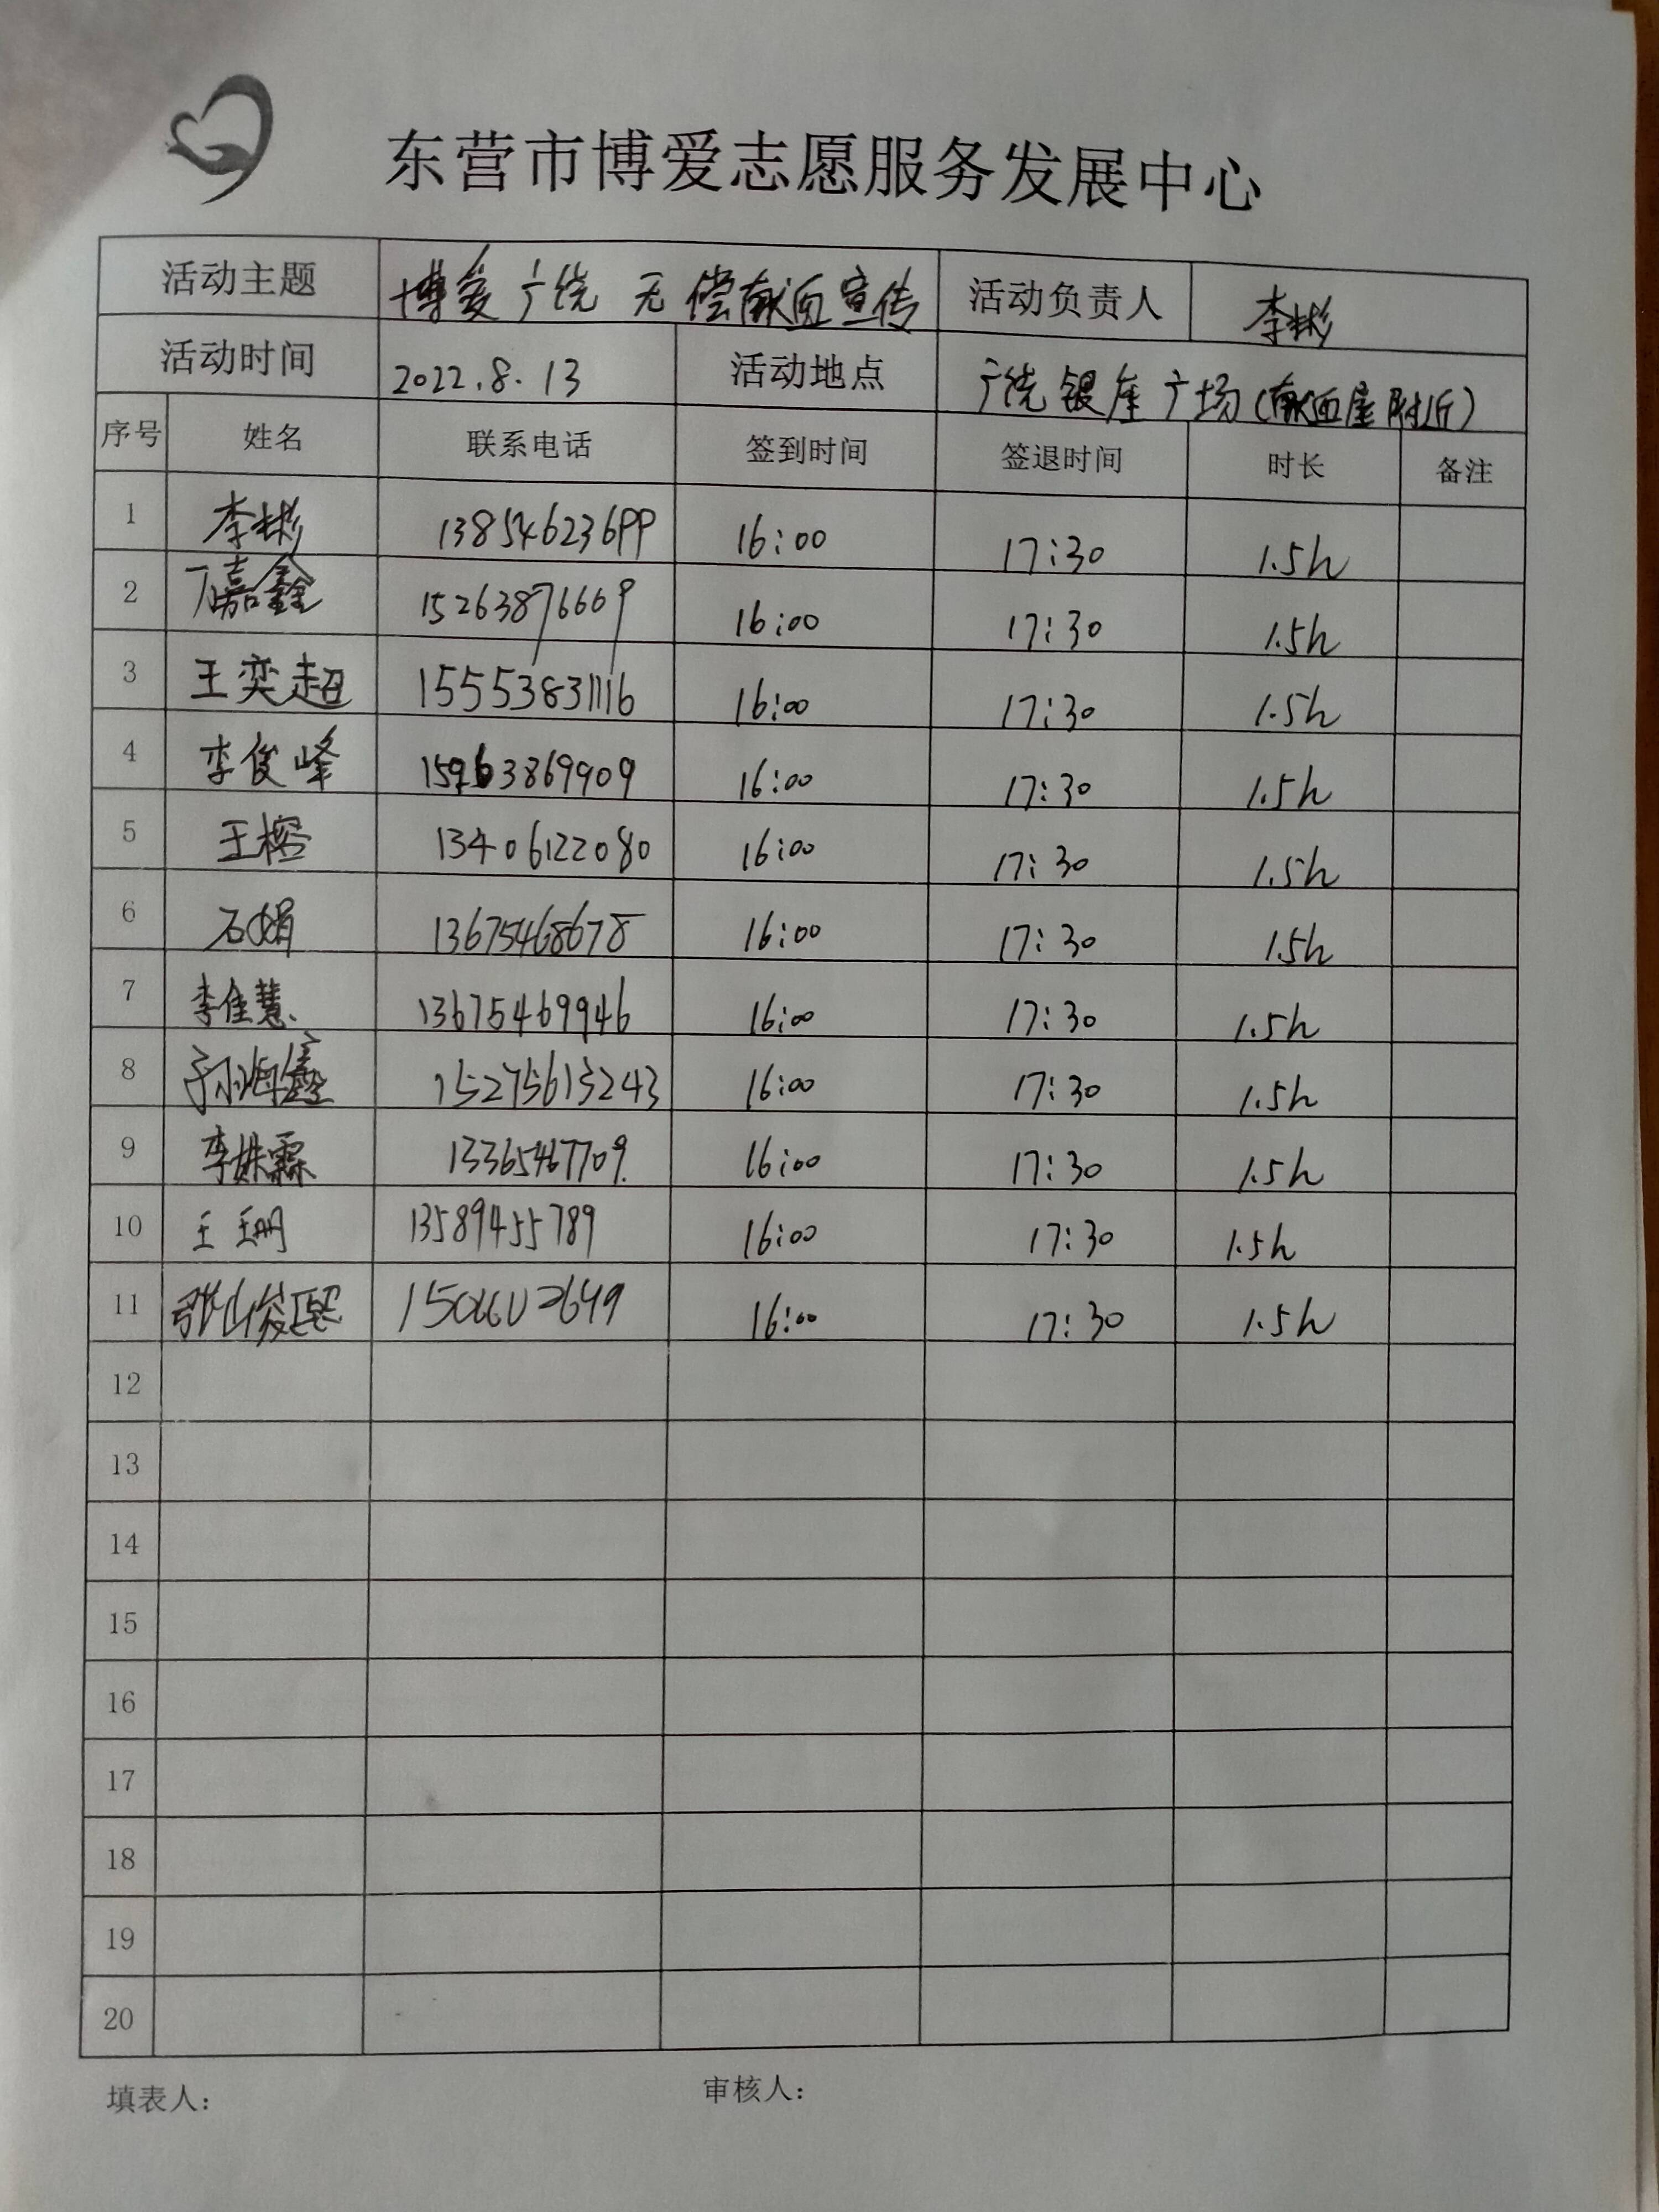 东营市博爱志愿服务发展中心
活动主题 博爱广饶 无偿献血宣传 活动负责人 李彬
活动时间 2022.8.13 活动地点 广饶银座广场(献血屋附近)
序号 姓名 联系电话 签到时间 签退时间 时长 备注
1 李彬 13854623699 16:00 17:30 1.5h
2 丁嘉鑫 15263876669 16:00 17:30 1.5h
3 王奕超 15553831116 16:00 17:30 1.5h
4 李俊峰 15963869909 16:00 17:30 1.5h
5 王榕 13406122080 16:00 17:30 1.5h
6 石娟 13675468678 16:00 17:30 1.5h
7 李佳慧 13675469946 16:00 17:30 1.5h
8 孙海鑫 15275613243 16:00 17:30 1.5h
9 李姝霖 13365467709 16:00 17:30 1.5h
10 王珊 13589455789 16:00 17:30 1.5h
11 16:00 17:30 1.5h
12
13
14
15
16
17
18
19
20
填表人: 审核人: